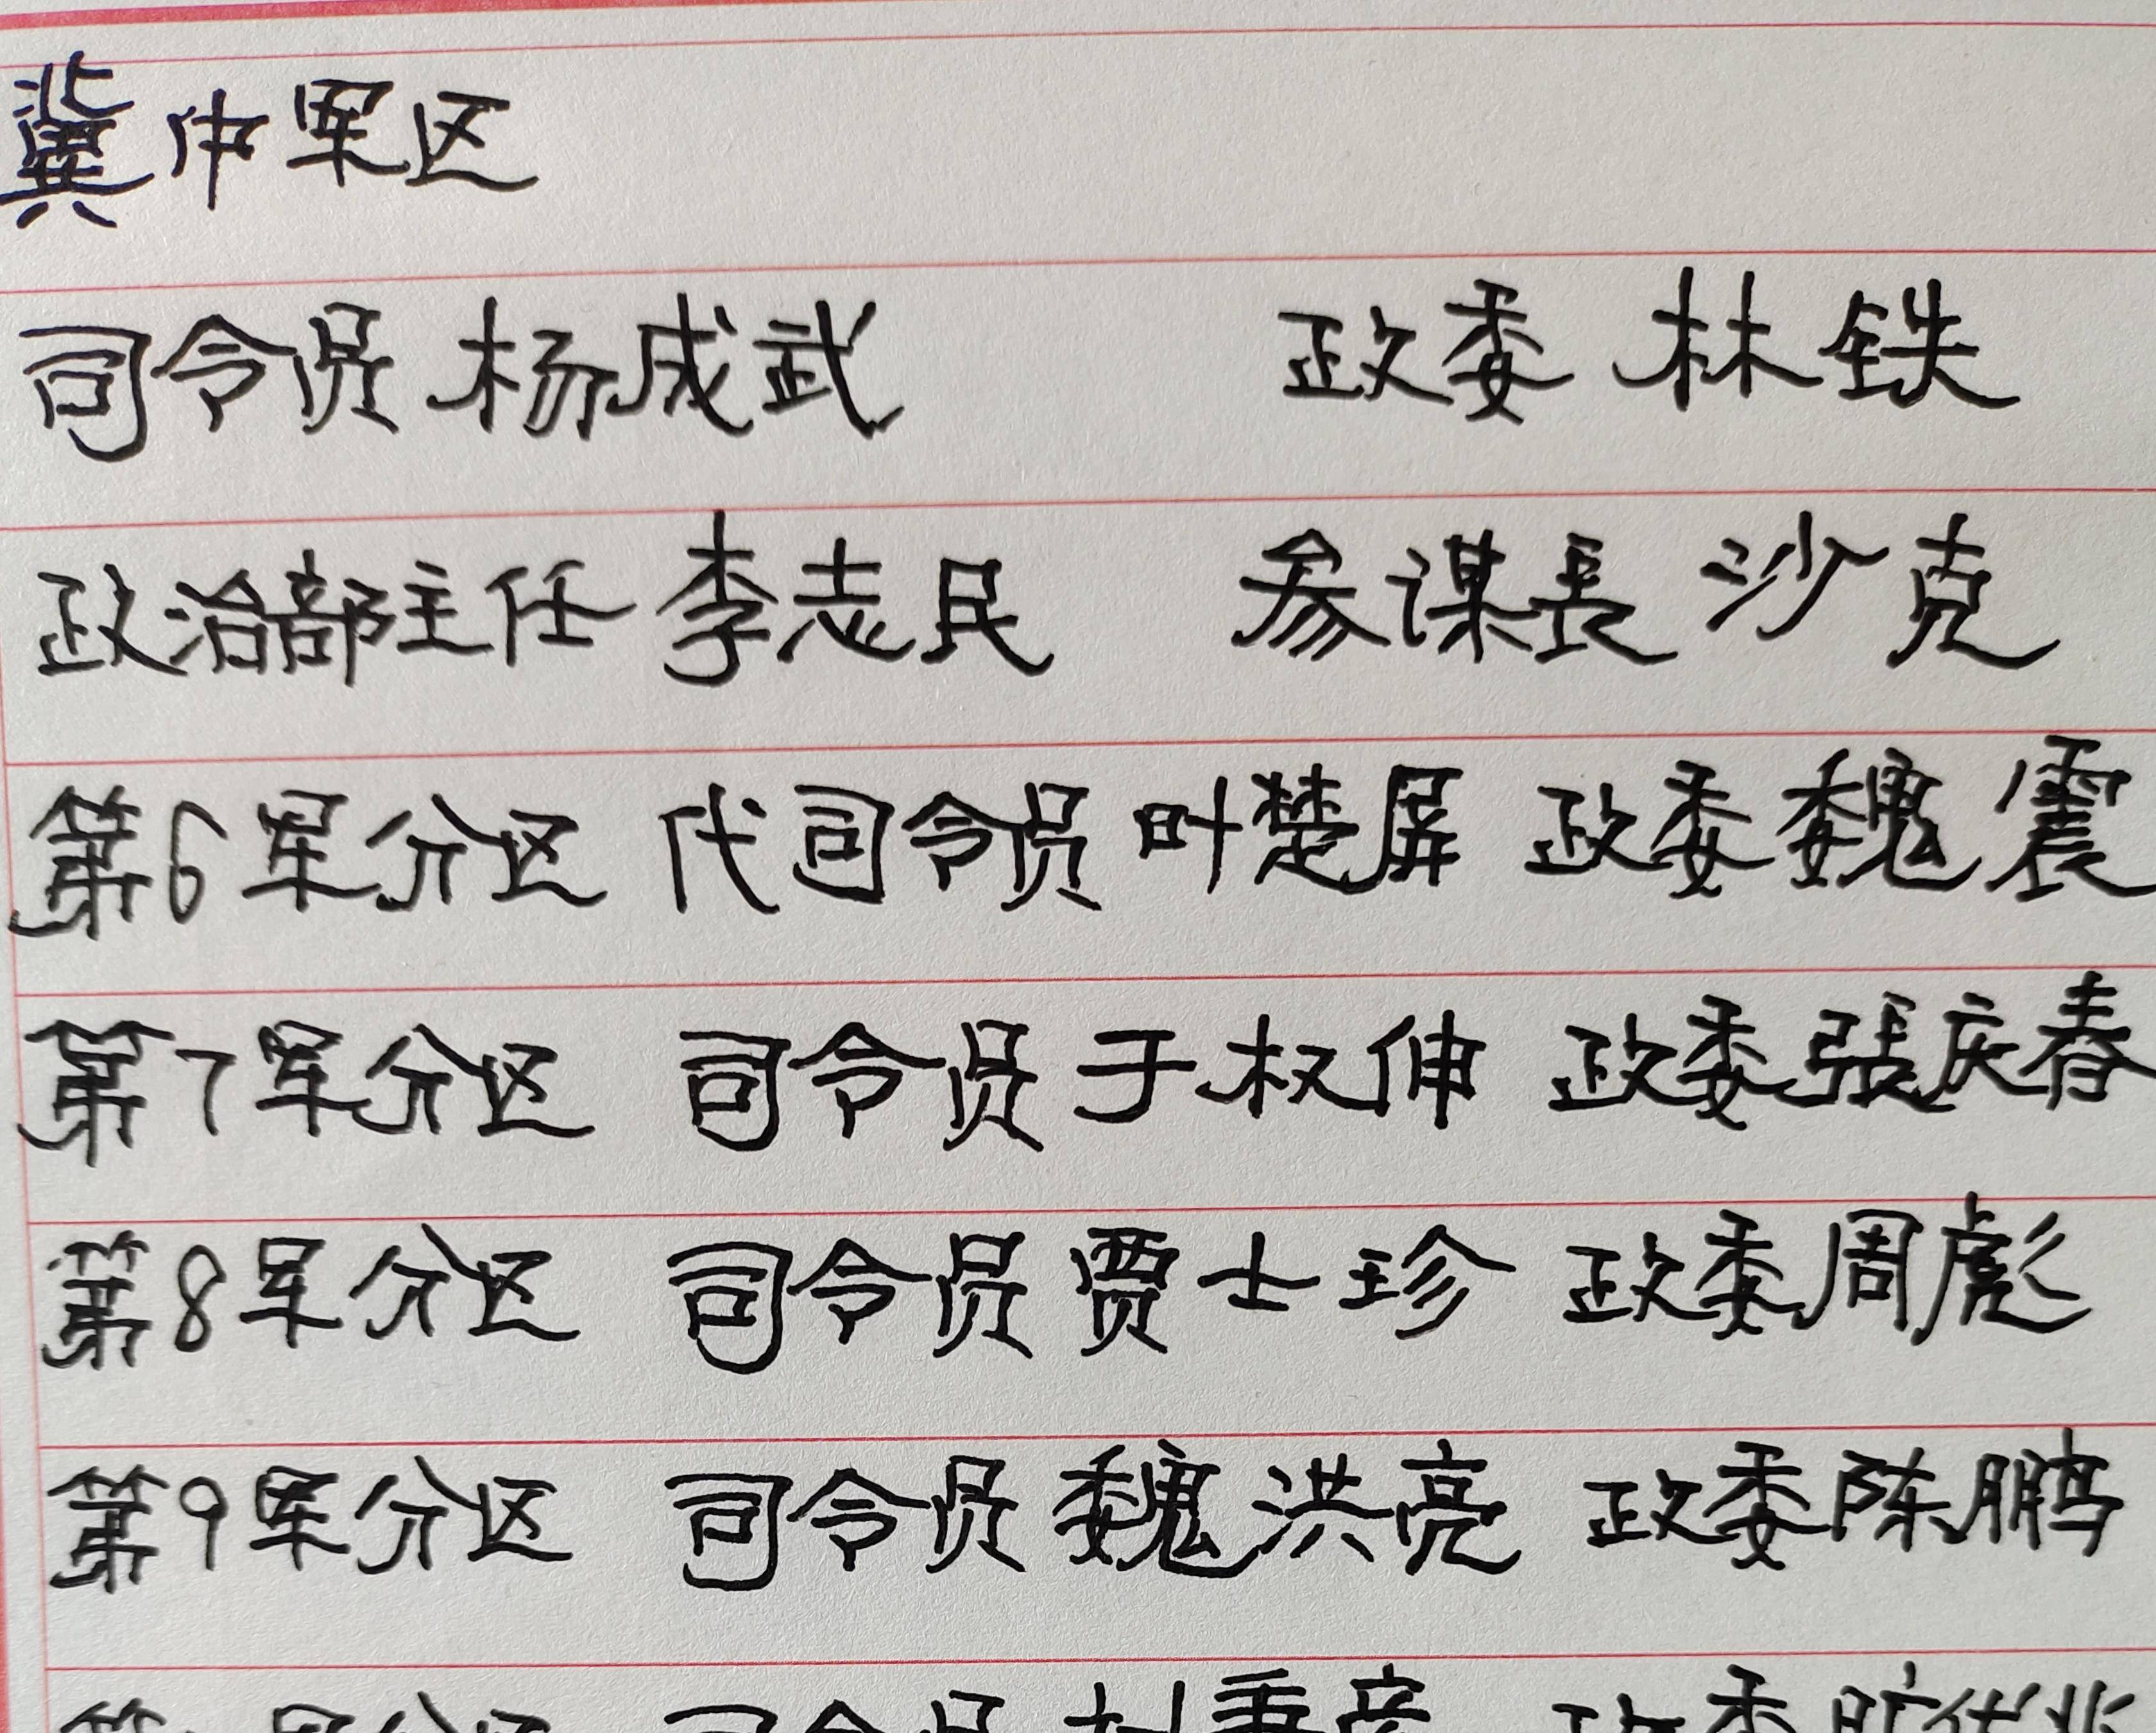 冀中军区
司令员 杨成武 政委 林铁
政治部主任 李志民 参谋長 沙克
第6军分区 代司令员 叶楚屏 政委 魏震
第7军分区 司令员 于权伸 政委 張庆春
第8军分区 司令员 贾士珍 政委 周彪
第9军分区 司令员 魏洪亮 政委 陈鹏
军分区 司令员 政委 旷伏兆